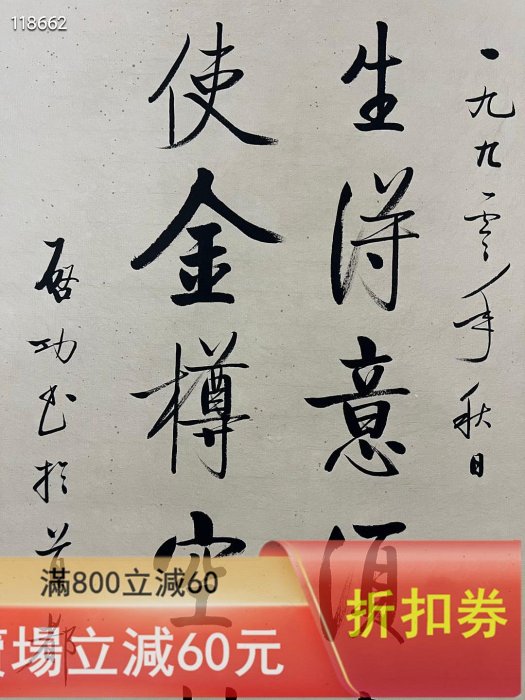 118662
一九九零年秋日
生得意须
使金樽空
啟功书於首都
滿800立減60
賣場立減60元
折扣券